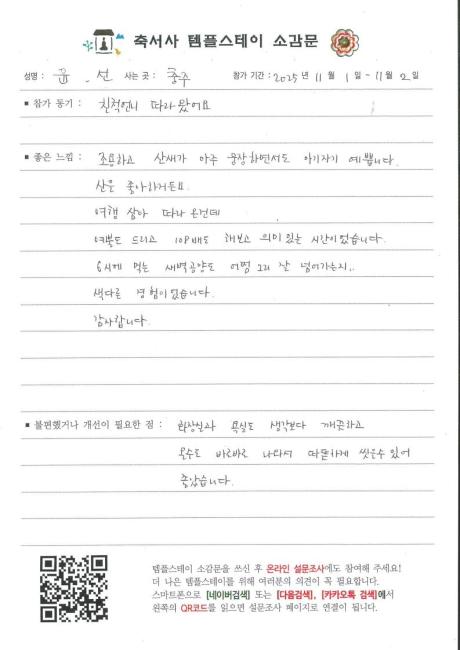 축서사 템플스테이 소감문
성명 : 윤 선 사는 곳 : 충주 참가 기간 : 2025 년 11 월 1 일 - 11 월 2 일
■ 참가 동기 : 친척언니 따라왔어요
■ 좋은 느낌 : 조용하고 산새가 아주 웅장하면서도 아기자기 예쁩니다.
산을 좋아하거든요.
여행 삼아 따라 온건데
예불도 드리고 108배도 해보고 의미 있는 시간이었습니다.
6시에 먹는 새벽공양도 어쩜 그리 잘 넘어가는지..
색다른 경험이었습니다.
감사합니다.
■ 불편했거나 개선이 필요한 점 : 화장실과 욕실도 생각보다 깨끗하고
온수도 바로바로 나와서 따뜻하게 씻을수 있어
좋았습니다.
템플스테이 소감문을 쓰신 후 온라인 설문조사에도 참여해 주세요!
더 나은 템플스테이를 위해 여러분의 의견이 꼭 필요합니다.
스마트폰으로 [네이버검색] 또는 [다음검색], [카카오톡 검색]에서
왼쪽의 QR코드를 읽으면 설문조사 페이지로 연결이 됩니다.